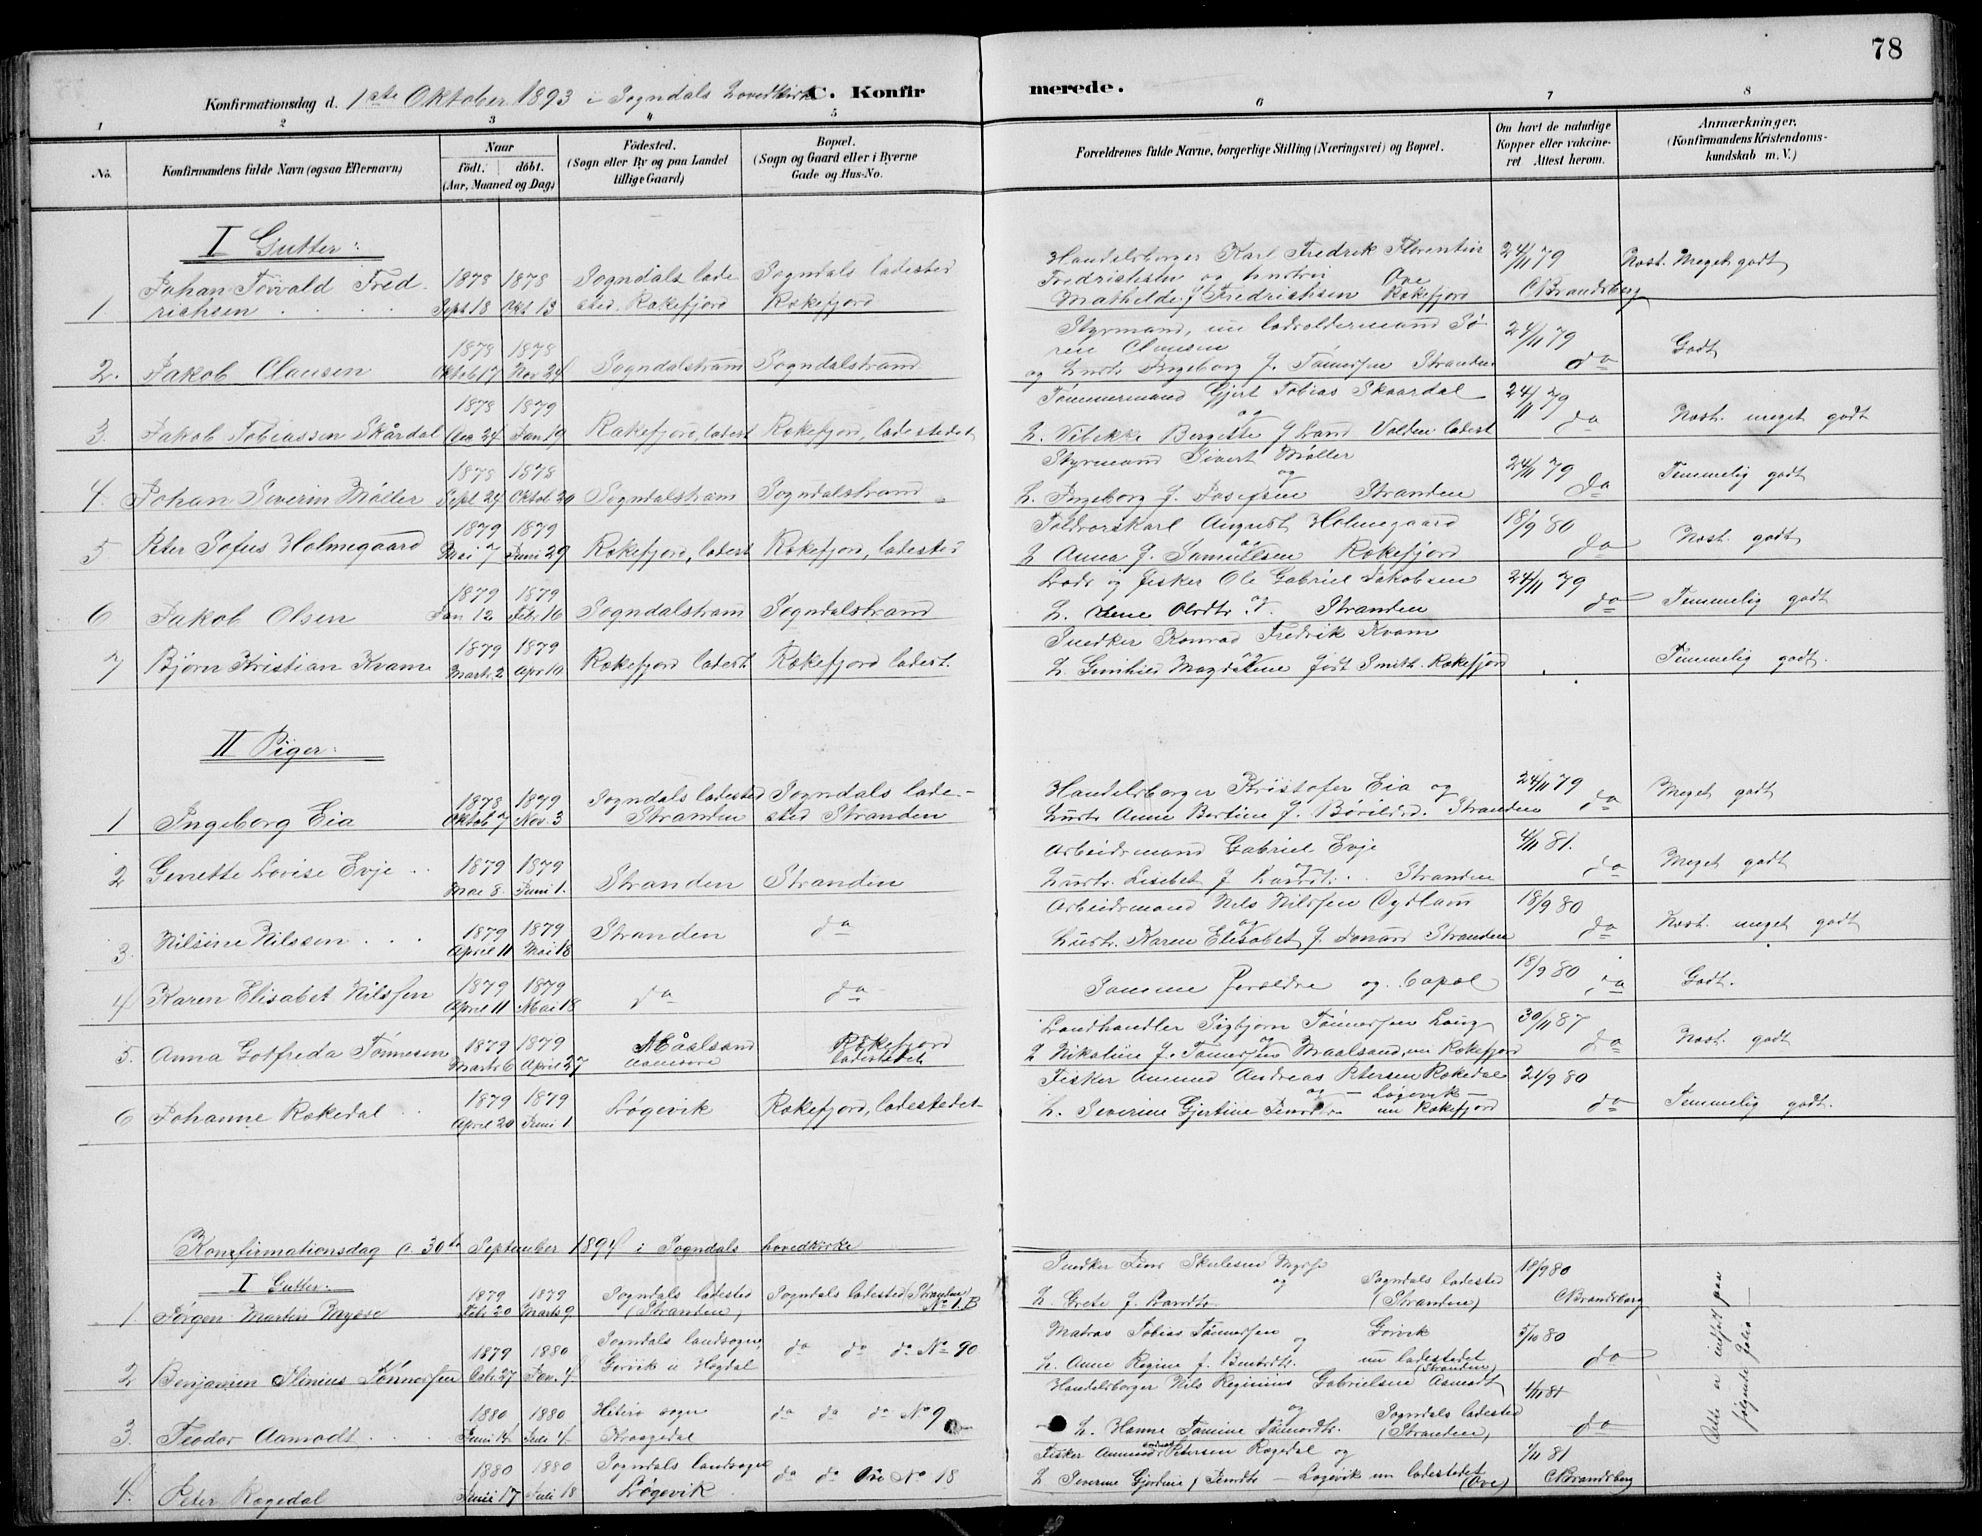 78
Konfirmationsdag d. 1ste Oktober 1893 i Sogndals Hovedkirke
C. Konfirmerede.
1 2 3 4 5 6 7 8
No.
Konfirmandens fulde Navn (ogsaa Efternavn)
Naar
født. døbt.
(Aar, Maaned og Dag)
Fødested.
(Sogn eller By og paa Landet
tillige Gaard)
Bopæl.
(Sogn og Gaard eller i Byerne
Gade og Hus-No.
Forældrenes fulde Navne, borgerlige Stilling (Næringsvei) og Bopæl.
Om havt de naturlige
Kopper eller vakcine-
ret Attest herom.
Anmærkninger.
(Konfirmandens Kristendoms-
kundskab m. V.)
I Gutter:
1 Johan Torvald Fred-
richsen
1878 Sept 18 1878 Okt 13
Sogndals lade-
sted, Rækefjord
Sogndals ladested
Rækefjord
Handelsborger Karl Fredrik Florentin
Fredrichsen og Hustru
Mathilde f Fredrichsen Ove Rækefjord
24/11 79 CBrandsberg
Næst. Meget godt
2. Jakob Clausen
1878 Oktob 17 1878 Nov 24
Sogndalstrand Sogndalstrand
Styrmand, nu ladsoldermand Sø-
ren Clausen
og Hustr. Ingeborg f. Tønnessen Stranden
24/11 79 do
Godt
3. Jakob Tobiassen Skårdal
1878 1879 Jan 19
Rækefjord, ladest Rækefjord, ladestedet
Tømmermand Gjert Tobias Skaardal
og
H. Vibekke Bergitte f Lund Valden ladest
24/11 79 do
Næst. meget godt
4. Johan Severin Møller
1878 Sept 24 1878 Oktob 20
Sogndalstrand Sogndalstrand
Styrmand Sivert Møller
og
H. Ingeborg f. Josefsen Stranden
24/11 79 do
Temmelig godt
5 Peter Sofus Holmegaard
1879 Mai 7 1879 Juni 29
Rækefjord, ladest Rækefjord, ladested
Toldvorskarl August Holmegaard
og
H Anna f. Samuelsen Rækefjord
18/9 80 do
Næst. godt
6 Jakob Olsen
1879 Jan 12 1879 Febr 16
Sogndalstrand Sogndalstrand
Lods og fisker Ole Gabriel Jakobsen
og
H. Stranden
24/11 79 do
Temmelig godt
7 Bjørn Kristian Kvam
1879 Marts 2 1879 Apr 10
Rækefjord ladest Rækefjord ladest.
Snedker Konrad Fredrik Kvam
og
H. Gunhild Magdalene født Smith. Rækefjord
Temmelig godt.
II Piger:
1 Ingeborg Eia
1878 Oktob 7 1879 Nov. 3
Sogndals ladested
Stranden
Sogndals lade-
sted Stranden
Handelsborger Kristofer Eia og
Hustr Anne Bertine f. Stranden
24/11 79 do
Meget godt
2 Genette Lovise Evje
1879 Mai 8 1879 Juni 1.
Stranden Stranden
Arbeidsmand Gabriel Evje
og
Hustr. Lisebet f Stranden
4/11 81. do
Meget godt
3. Nilsine Nilssen
1879 April 11 1879 Mai 18
Stranden do
Arbeidsmand Nils Nilssen Aydland
og
Hustr. Karen Elisabet f Jonasd Stranden
18/9 80 do
Næst. meget godt
4 Karen Elisabet Nilssen
1879 April 11 1879 Mai 18
do do
Samme forældre og Bopæl
18/9 80 do
Godt.
5. Anna Gotfreda Tønnesen
1879 Marts 6 1879 April 27
Maalsand
Rækefjord
ladestedet
Landhandler Sigbjørn Tønnessen Haug
og
H Nikoline f. Tønnessen Maalsand, nu Rækefjord
30/11 87 do
Næst. godt
6 Johanne Rækedal
1879 April 20 1879 Juni 1
Løgevik Rækefjord, ladestedet
Fisker Amund Andreas Petersen Rækedal
og — Løgevik —
H. Severine Gjertine Jensdtr nu Rækefjord
21/9 80 do
Temmelig godt.
Konfirmationsdag d. 30te September 1894 i Sogndals hovedkirke
I Gutter:
1. Jørgen Martin Mysse
1879 Febr 20 1879 Marts 9
Sogndals ladested
(Stranden)
Sogndals ladested (Stranden)
No 1. B
Snedker Jens Skulesen Mysse
og
H. Grete f.
Sogndals ladested
(Stranden)
18/9 80 CBrandsberg
2 Benjamin Plinius Tønnessen
1879 Octr 27 1880 Jan. 4
Sogndals landsogn,
Gørvik u Hogdal
do do do No 90
Matros Tobias Tønnessen
og
H. Anne Regine f.
Gørvik
nu ladestedet
(Stranden)
5/10 80 do
3. Teodor Aamodt
1880 Juni 14 1880 Juli 4
Heterø sogn
Aaegedal
do do do No 9
Handelsborger Nils Reginius Gabrielsen Aamodt
og
H. Hanne Tomine Tønnesdtr.
Sogndals ladested
(Stranden)
4/11 81 do
4. Peter Rægedal
1880 Juni 17 1880 Juli 18
Sogndals landsogn
Løgevik
do do Ove No 18
Fisker Ammund Andreas Petersen Rægedal og
H Severine Gjertine f Jensdtr — Løgevik nu ladestedet
(Ove)
1/11 81 CBrandsberg
Dette er indført paa
følgende folio —